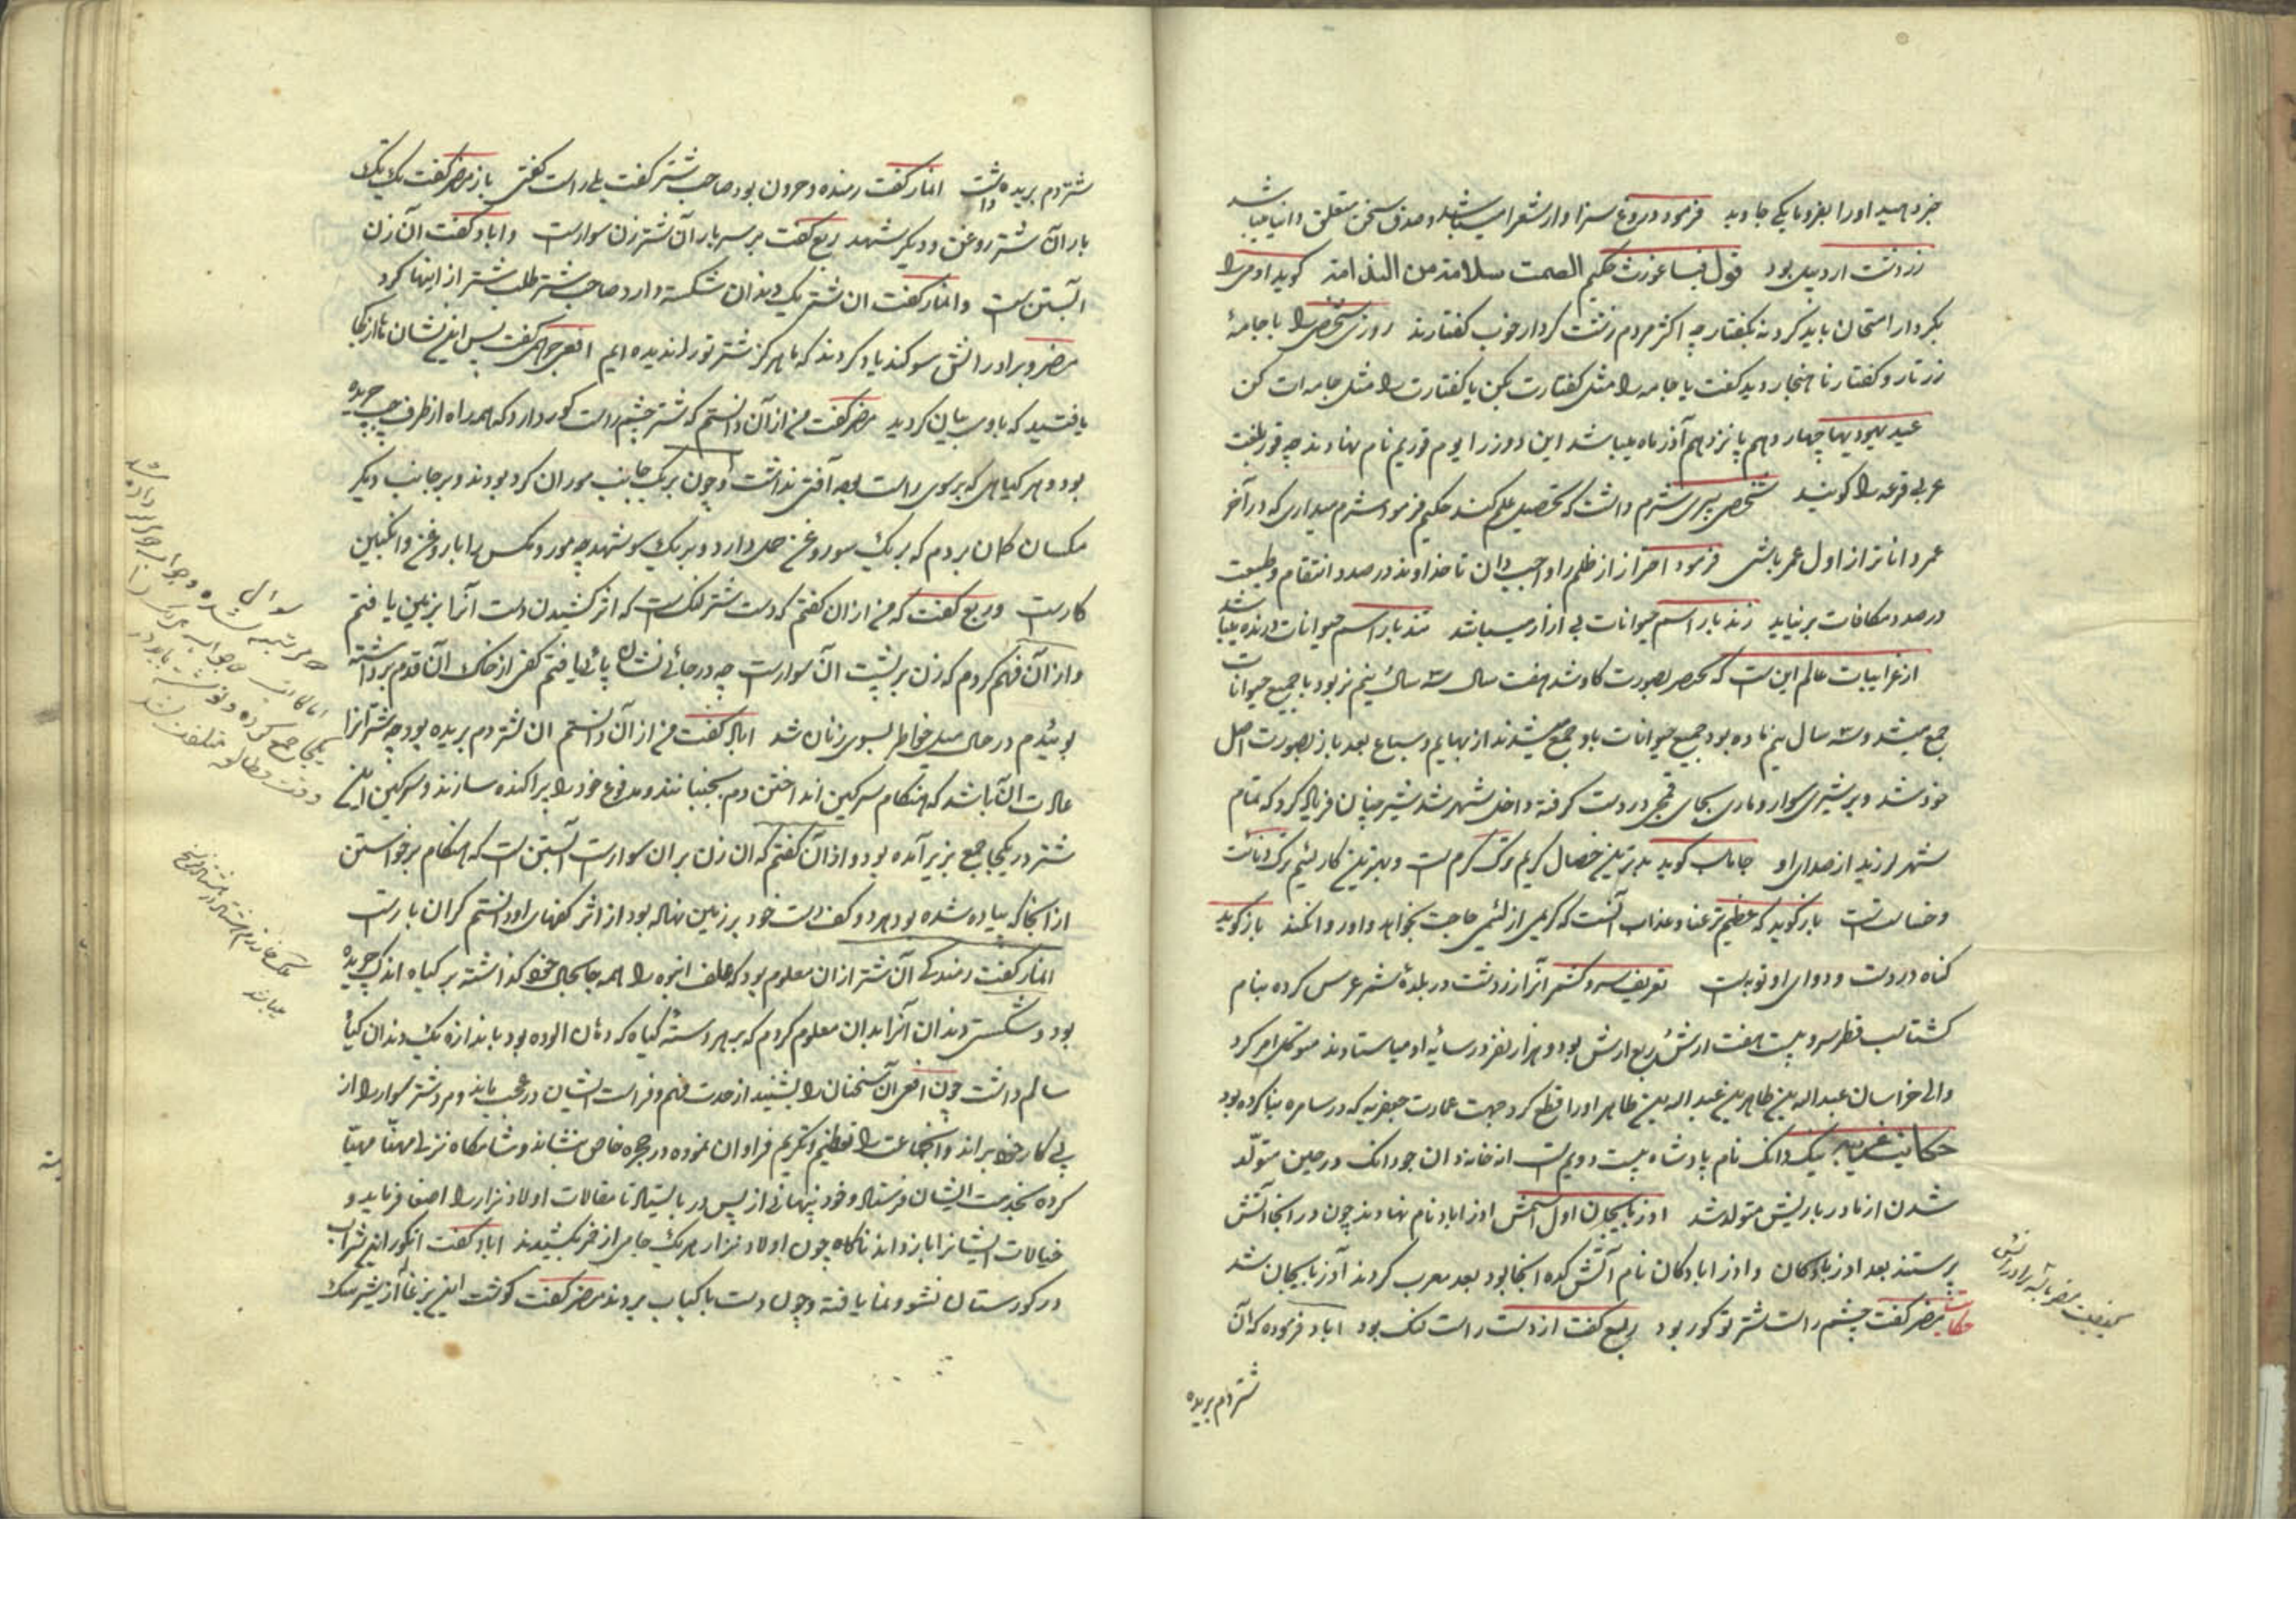 خبر دهید او را بغزو یا یکی جاوید فرمود دروغ سزاوار شعرا میباشد و صدق سخن متعلق دانایان میباشد
زردشت اردبیل بود قول فیساغورث حکیم الصمت سلامة من الندامة گوید آدمی را
بکردار امتحان باید کرد نه بگفتار چه اکثر مردم زشت کردار خوب گفتارند روزی شخصی را با جامهٔ
زرتار و گفتار ناهنجار دید گفت یا جامه را مثل گفتارت بکن یا گفتارت را مثل جامه ات کن
عید یهودیها چهاردهم پانزدهم آذر ماه میباشد این دو روز را یوم فوریم نام نهادند چه فور بلغت
عربی قرعه را گویند شخص پیری شرم داشت که تحصیل علم کند حکیم فرمود شرم میداری که در آخر
عمر داناتر از اول عمر باشی فرمود احتراز از ظلم را واجب دان تا خداوند در صدد انتقام و طبیعت
در صدد مکافات بر نیاید زند بار اسم حیوانات بی آزار میباشد تند بار اسم حیوانات درنده میباشد
از غرایبات عالم این است که بختنصر بصورت گاو شد هفت سال ۳ سال و نیم نر بود با جمیع حیوانات
جمع میشد و ۳ سال نیم ماده بود جمیع حیوانات باو جمع میشدند از بهایم و سباع بعد باز بصورت اصل
خود شد و بر شیری سوار و ماری بجای قمچی در دست گرفته داخل شهر شد شیر چنان فریاد کرد که تمام
شهر لرزید از صدای او جاماسب گوید بدترین خصال کریم ترک کرم است و بهترین کار لئیم ترک دنائت
و خساست است باز گوید که عظیم‌تر عنا و عذاب آنست که کریمی از لئیمی حاجت بخواهد و او روا نکند باز گوید
گناه درد است و دوای او توبه است تعریف سرو کشمر آنرا زردشت در بلدهٔ کشمر غرس کرده بنام
گشتاسب قطر سرو بیست هفت ارش و ربع ارش بود و هزار نفر در سایهٔ او میاستادند متوکل امر کرد
والی خراسان عبدالله بن طاهر بن عبدالله بن طاهر او را قطع کرد جهت عمارت جعفریه که در سامره بنا کرده بود
حکایت غریبه نیک دانک نام پادشاه بیست دویم است از خاندان جودانک در چین متولد
شدن از مادر با ریش متولد شد آذربایجان اول اسمش آذر اباد نام نهادند چون در آنجا آتش
پرستند بعد آذربادکان و آذر ابادکان نام آتش کده آنجا بود بعد معرب کردند آذربایجان شد
حکایت مضر گفت چشم راست شتر تو کور بود ربیع گفت از دست راست لنگ بود ایاد فرموده که آن
شتر دم بریده
کیفیت مضر با سه برادرانش
شتر دم بریده داشت انمار گفت رمنده و حرون بود صاحب شتر گفت بلی راست گفتی باز مضر گفت یک تنگ
بار آن شتر روغن و دیگر شهد ربیع گفت بر سر بار آن شتر زن سوار است و ایاد گفت آن زن
آبستن است و انمار گفت آن شتر یک دندان شکسته دارد صاحب شتر طلب شتر از اینها کرد
مضر و برادرانش سوگند یاد کردند که ما هرگز شتر تو را ندیده ایم افعی جرهمی گفت پس این نشان ها از کجا
یافتید که باو بیان کردید مضر گفت من از آن دانستم که شتر چشم راست کور دارد که همه راه از طرف چپ چریده
بود و هر گیاهی که بر سوی راست بود آفتی نداشت و چون بر یک جانب موران گرد بودند و بر جانب دیگر
مگسان گمان بردم که بر یک سو روغن حمل دارد و بر یک سو شهد چه مور و مگس را با روغن و انگبین
کار است و ربیع گفت که من از آن گفتم که دست شتر لنگ است که اثر کشیدن دست آنرا بزمین یافتم
و از آن فهم کردم که زن بر پشت آن سوار است چه در جائی نشان پائی یافتم کفی از خاک آن قدم برداشته
بوئیدم در حال میل خاطر بسوی زنان شد ایاد گفت من از آن دانستم آن شتر دم بریده بود چه شتر آنرا
عادت آن باشد که هنگام سرگین انداختن دم بجنباند و مدفوع خود را پراکنده سازند و سرگین این
شتر در یکجا جمع بزیر آمده بود و از آن گفتم که آن زن بر آن سوار است آبستن است که هنگام برخواستن
از آنجا که پیاده شده بود هر دو کف دست خود بر زمین نهاده بود از اثر کفهای او دانستم گران بار است
انمار گفت رمندگی آن شتر از آن معلوم بود که علف انبوه را همه جا بجای خود گذاشته بر گیاه اندک چریده
بود و شکستن دندان آنرا بدان معلوم کردم که بهر دستهٔ گیاه که دهان آلوده بود باندازه یک دندان گیاه
سالم داشت چون افعی آن سخنان را بشنید از حدت فهم و فراست ایشان در عجب ماند و مرد شتر سوار را از
پی کار خود براند و آنجماعت را تعظیم و تکریم فراوان نموده در حجره خاص بنشاند و شامگاه نزلی مهنّا مهیّا
کرده بخدمت ایشان فرستاد و خود پنهانی از پس در بایستاد تا مقالات اولاد نزار را اصغا فرماید و
خیالات ایشانرا باز داند ناگاه چون اولاد نزار هر یک جامی از خمر بکشیدند ایاد گفت انگور این شراب
در گورستان نشو و نما یافته و چون دست با کباب بردند مضر گفت گوشت این بزغاله از شیر سگ
سوال